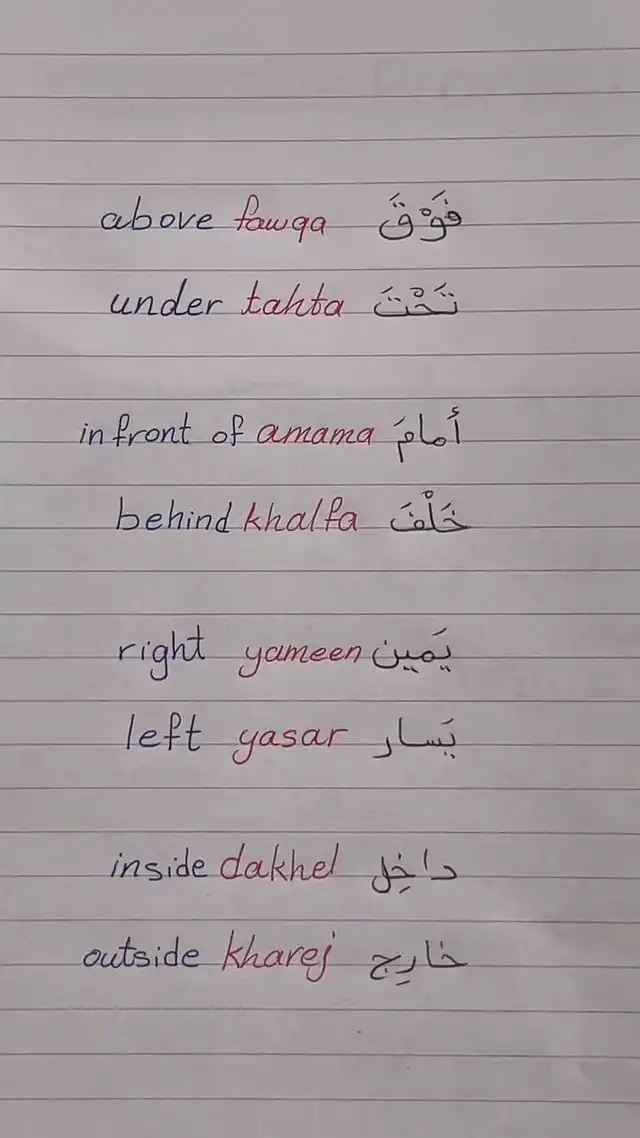 above fawqa فَوْقَ
under tahta تَحْتَ
in front of amama أمامَ
behind khalfa خَلْفَ
right yameen يَمين
left yasar يَسار
inside dakhel داخِل
outside kharej خارِج